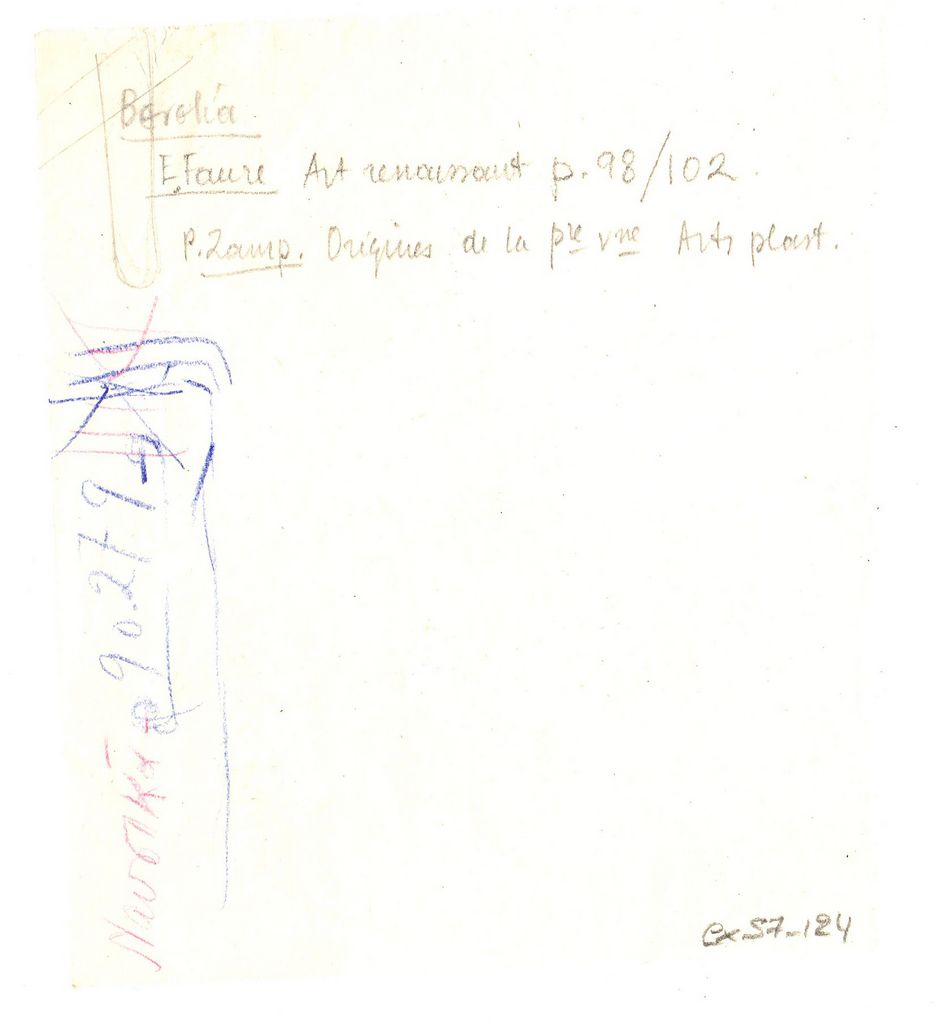 E. Faure Art renaissant p. 98/102.
P. Zamp. Origines de la pre vne Arts plast.
90.279
ex_57_124